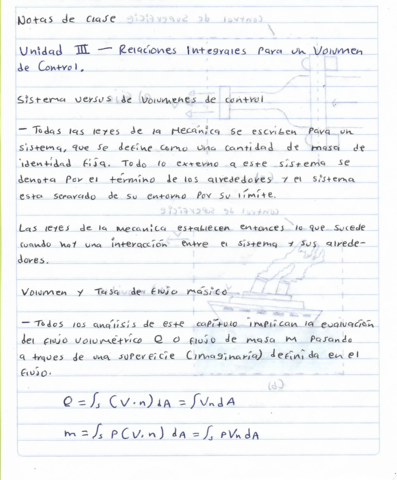 Notas de clase
Unidad III — Relaciones Integrales para un Volumen
de Control.
Sistema versus de volumenes de control
— Todas las leyes de la mecánica se escriben para un
sistema, que se define como una cantidad de masa de
identidad fija. Todo lo externo a este sistema se
denota por el término de los alrededores y el sistema
esta separado de su entorno por su límite.
Las leyes de la mecanica establecen entonces lo que sucede
cuando hay una interacción entre el sistema y sus alrede-
dores.
Volumen y Tasa de flujo másico.
— Todos los análisis de este capítulo implican la evaluación
del flujo volumétrico Q o flujo de masa m pasando
a traves de una superficie (imaginaria) definida en el
flujo.
Q = ∫s (V·n) dA = ∫Vn dA
m = ∫s ρ(V·n) dA = ∫s ρVn dA